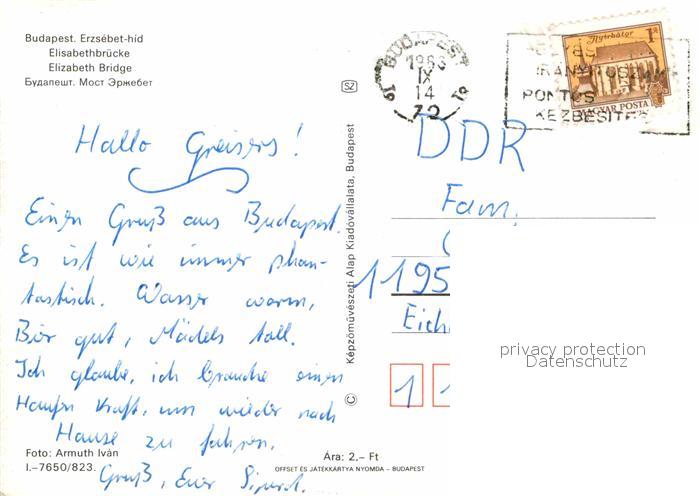 Budapest. Erzsébet-híd
Elisabethbrücke
Elizabeth Bridge
Будапешт. Мост Эржебет
Hallo Greisers!
Einen Gruß aus Budapest.
Es ist wie immer phan-
tastisch. Wasser warm,
Bier gut, Mädels toll.
Ich glaube, ich brauche einen
Haufen Kraft, um wieder nach
Hause zu fahren.
Gruß, Euer
Foto: Armuth Iván
I.–7650/823.
Ára: 2.– Ft
OFFSET ÉS JÁTÉKKÁRTYA NYOMDA – BUDAPEST
SZ
© Képzőművészeti Alap Kiadóvállalata, Budapest
BUDAPEST
IX
14
72
Nyírbátor
1 Ft
MAGYAR POSTA
IRÁNYÍTÓSZÁM
PONTOS
KÉZBESÍTÉS
DDR
Fam.
1195
Eich
1 1
privacy protection
Datenschutz